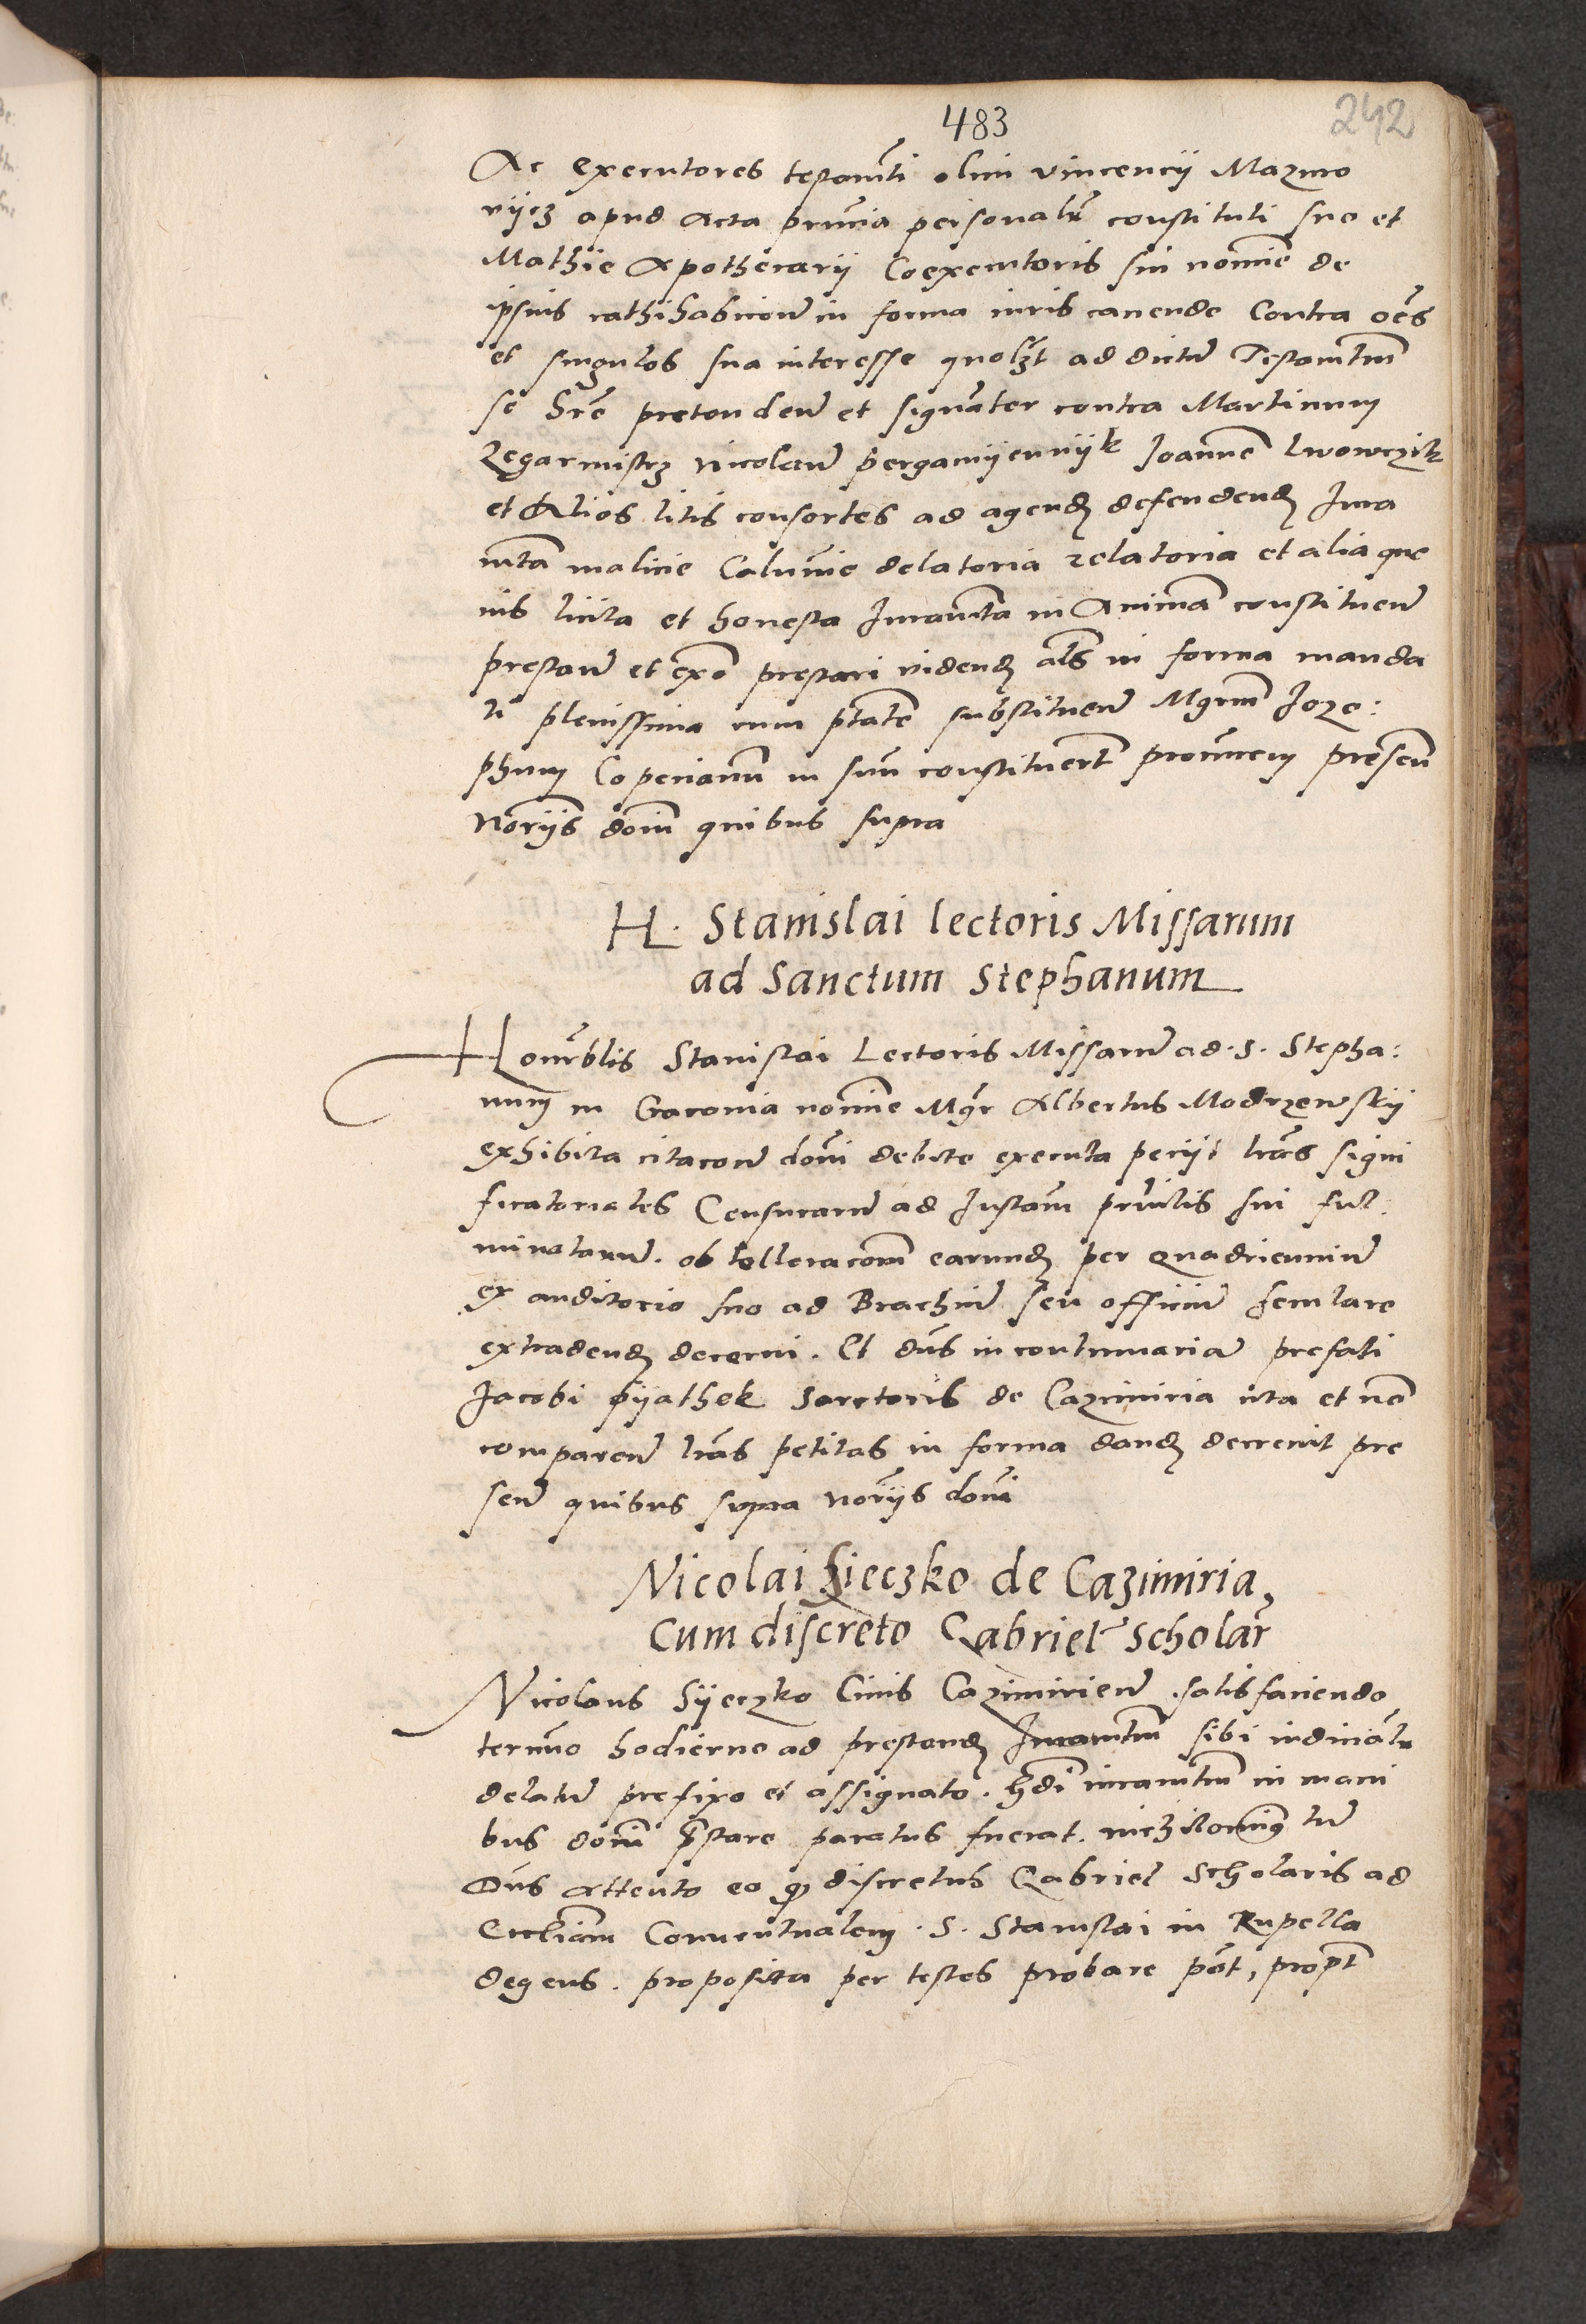 483
242
Ac executores testamti olim vincencij Mazuro
vijcz apud Acta pntia personalr constituti suo et
Mathie Apothecarij Coexecutoris sui nomine de
ipsius rathihabicoe in forma iuris cavendo Contra oes
et singulos sua interesse quolzt ad dictu Testamtum
se hre preten den et signater contra Martinum
Zegarmistrz Nicolau pergamijennijk Joanne Lwowczik
et Alios litis consortes ad agend defendend Jura
mta malicie Calumie delatoria relatoria et alia que
vis licita et honesta Juramta in Animā constituen
prestan et ex o prestari videnđ als in forma manda
ti plenissima cum ptate substituen Mgrum Joze:
phum Copecianu in suu constituert procurem presen
Norijs domi quibus supra
H. Stanislai lectoris Missarum
ad Sanctum Stephanum
Honorblis Stanislai Lectoris Missaru ad. S. Stepha:
num in Cracovia nomine Mgr Albertus Modrzewskij
exhibita citacone domi debite executa petijt lras signi
ficatoriales Censuraru ad Instam prncilis sui ful.
minataru. ob tolleraconem earunđ per quadrienniu
ex auditorio suo ad Brachiu seu officiu seculare
extradenđ decerni. Et dns in contumacia prefati
Jacobi pijathek Sartoris de Cazimiria citā et no
comparen lras petitas in forma danđ decrevit pre
sen quibus supra Norijs domi
Nicolai Sieczko de Cazimiria,
cum discreto Gabriele Scholar
Nicolaus Sijeczko Civis Cazimirien satisfaciendo
termino hodierno ad prestanđ Juramtum sibi iudicialr
delatu prefixo et assignato. hmodi iuramtum in mani
bus domi pstare paratus fuerat. nichilominus tn
Dns Attento eo q discretus Gabriel Scholaris ad
Eccliam Conventualem. S. Stanislai in Rupella
degens. proposita per testes probare pot, propt